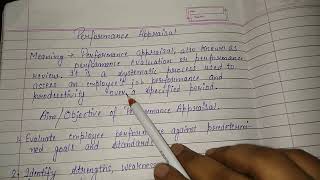 Performance Appraisal
Meaning → Performance Appraisal, also known as
performance evaluation or performance
review. It is a systematic process used to
assess an employee's job performance and
productivity over a specified period.
Aim/Objective of Performance Appraisal.
1. Evaluate employee performance against predetermi
ned goals and standards
2. Identify strengths, weakness